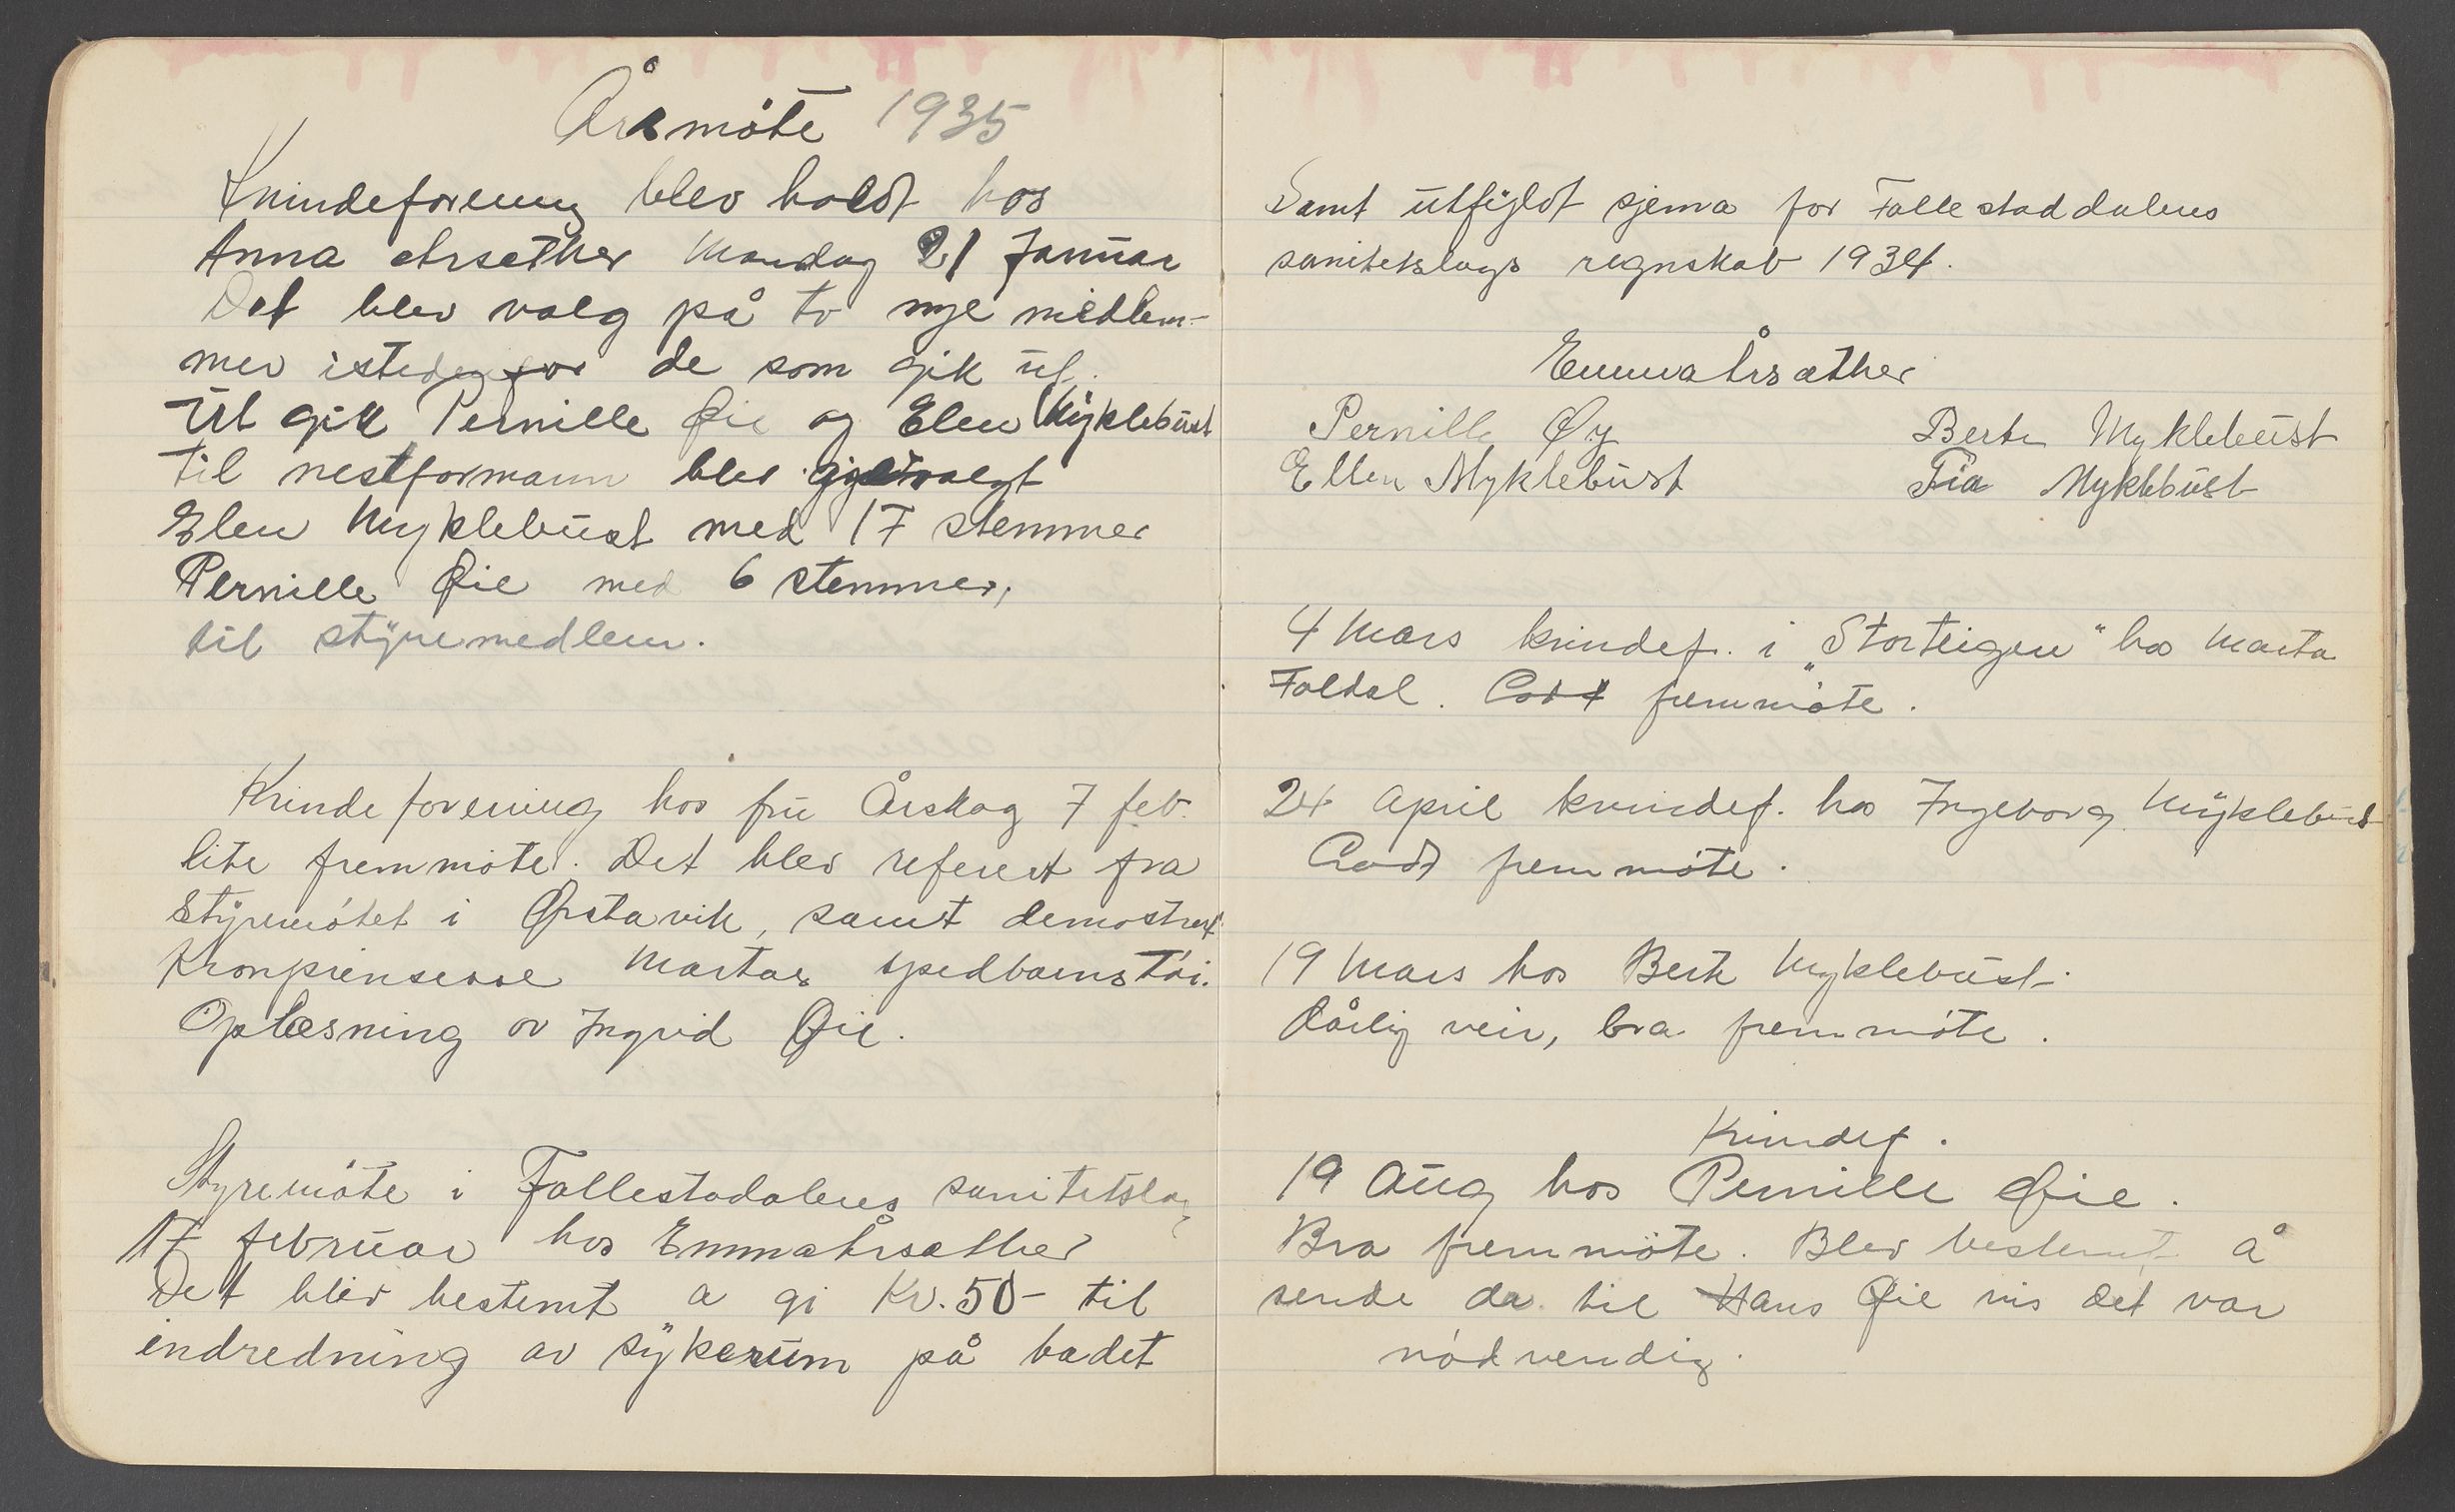 Årsmöte 1935
Kvindeforening blev holdt hos
Anna Årsæther Mandag 21 Januar
Det blev valg på to nye medlem-
mer istedenfor de som gik ut.
Ut gik Pernille Øie og Elen Myklebust
til nestformann blev valgt
Elen Myklebust med 17 stemmer
Pernille Øie med 6 stemmer,
til styremedlem.
Kvindeforening hos fru Årskog 7 feb.
lite fremmöte. Det blev referert fra
Styremötet i Ørstavik, samt demostrert
Kronprinsesse Martas spedbarnstöi.
Oplæsning av Ingrid Øie.
Styremöte i Follestadalens sanitetslag
17 februar hos Emma Årsæther
Det blev bestemt a gi Kr. 50- til
indredning av sykerum på badet
Samt utfyldt sjema for Follestaddalens
sanitetslags regnskab 1934.
Emma Årsæther
Pernille Øy Berte Myklebust
Ellen Myklebust Fia Myklebust
4 Mars kvindef. i „Storteigen" hos Marta
Foldal. Godt fremmöte.
24 April kvindef. hos Ingeborg Myklebust
Godt fremmöte.
19 Mars hos Berte Myklebust.
dårlig veir, bra fremmöte.
Kvindef.
19 Aug hos Pernille Øie.
Bra fremmöte. Blev bestemt å
sende til Hans Øie vis det var
nödvendig.